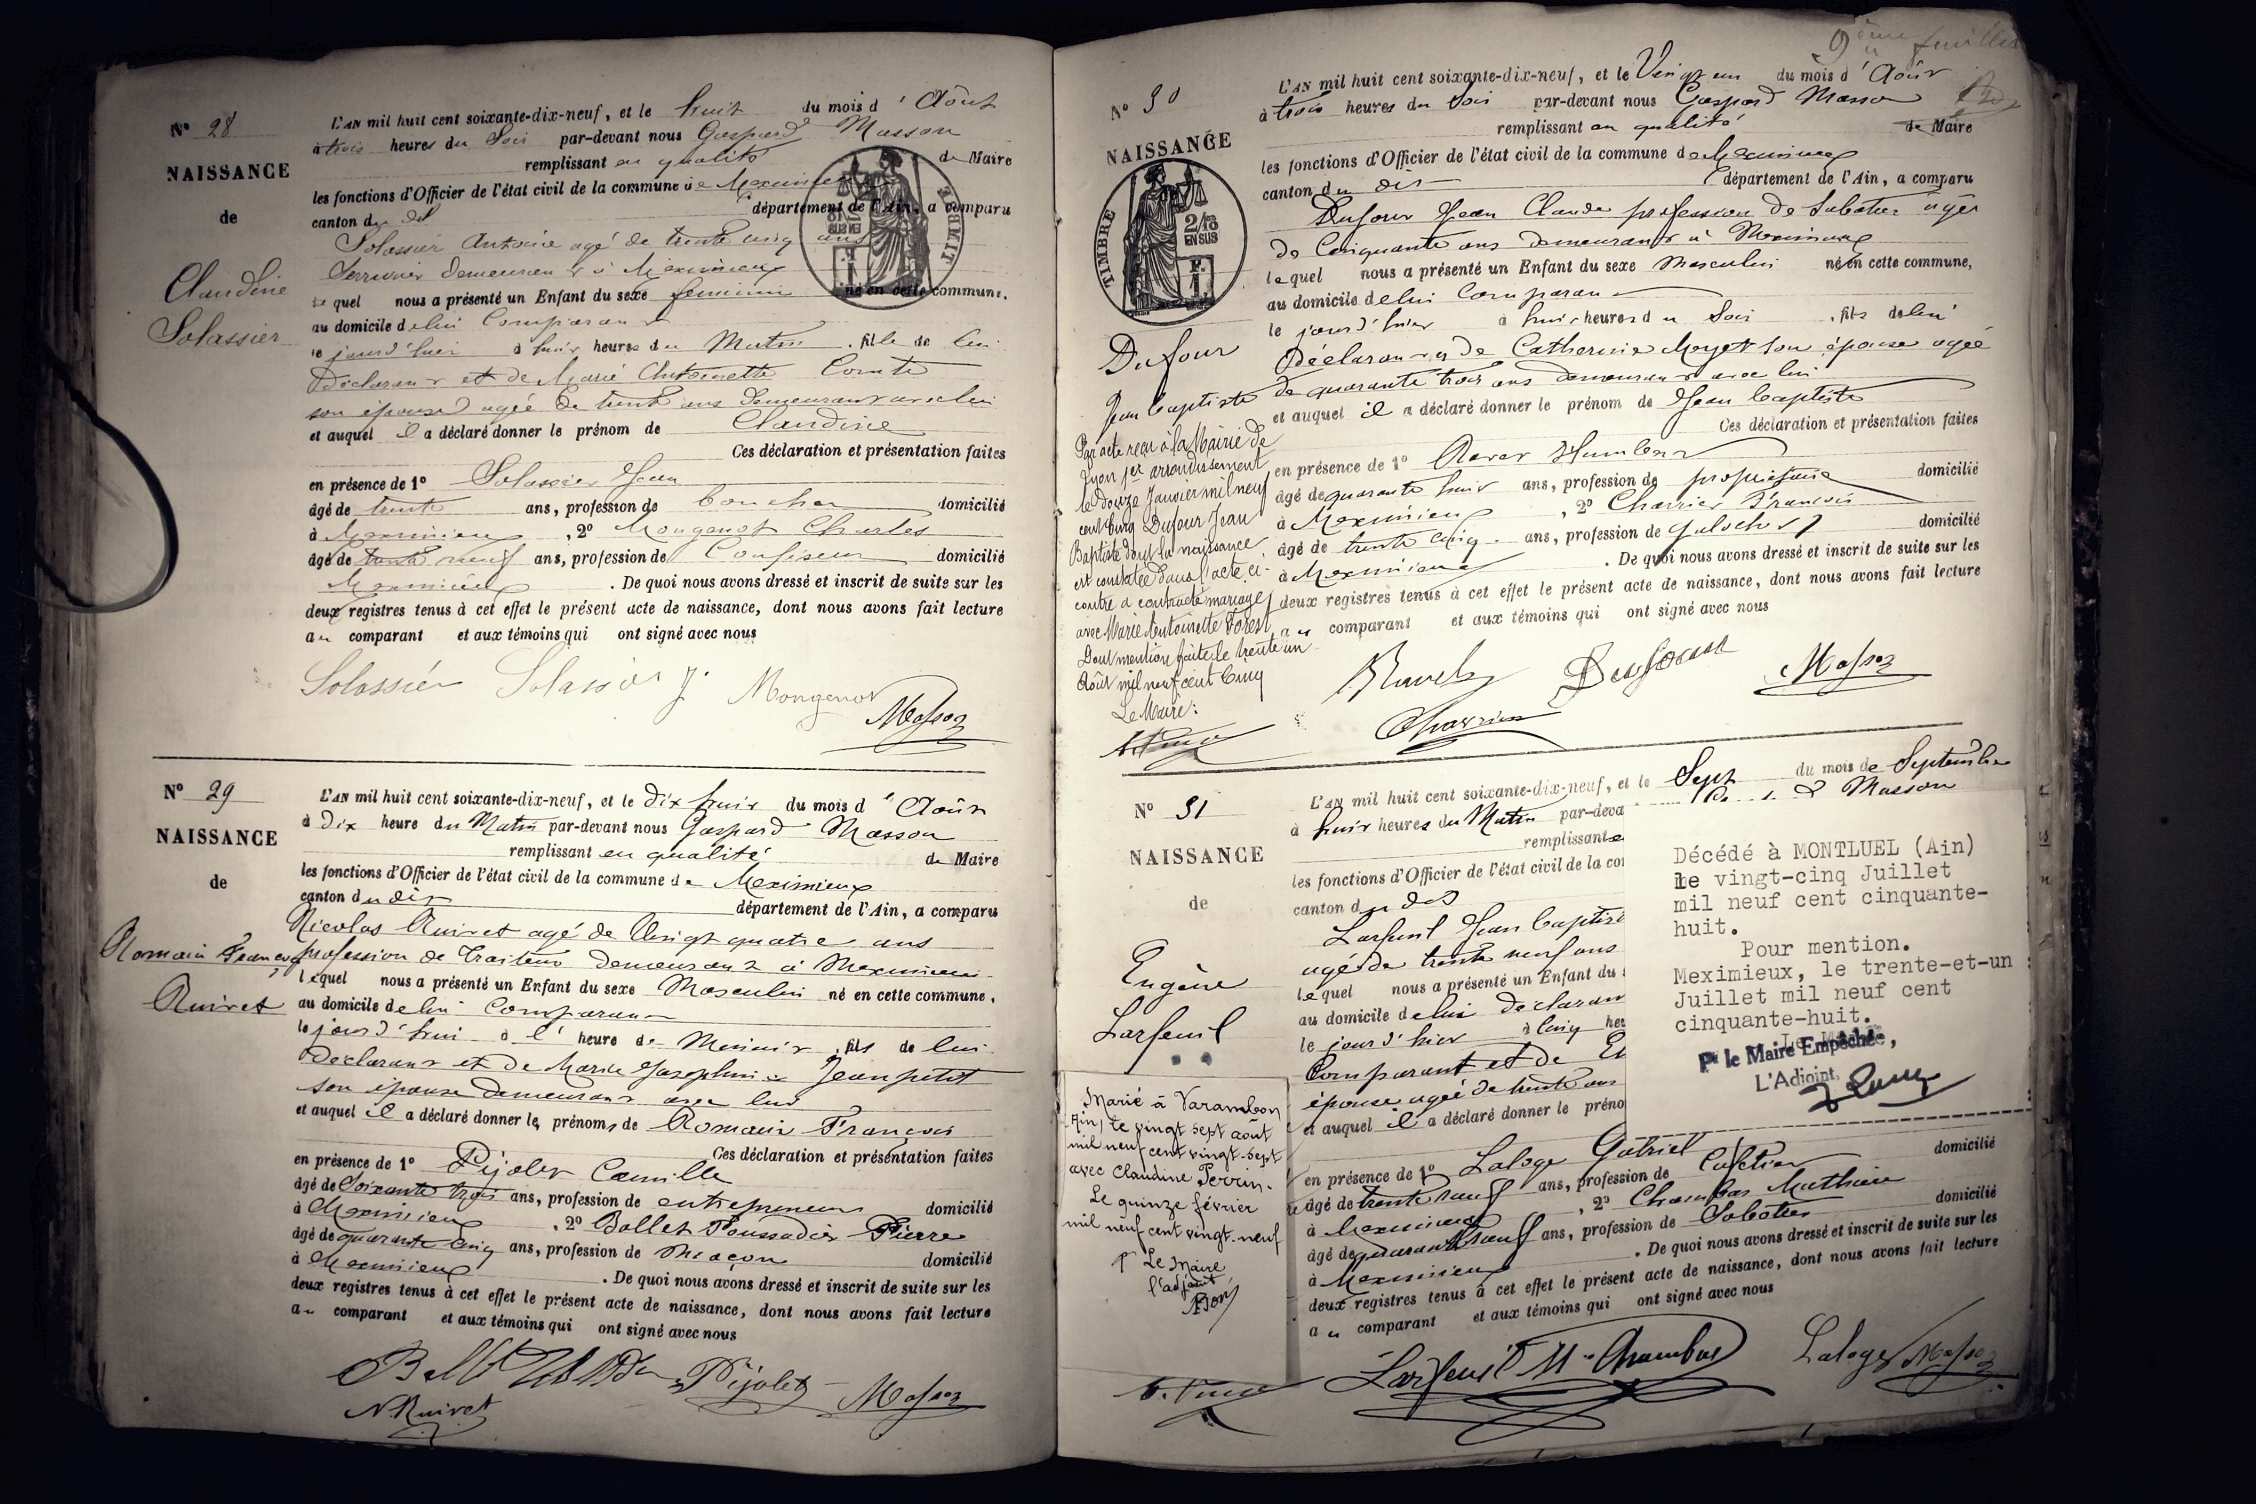 N° 28
NAISSANCE
de
Claudine
Solassier
L'AN mil huit cent soixante-dix-neuf, et le huit du mois d'Août
à trois heures du Soir par-devant nous Gaspard Masson
remplissant en qualité de Maire
les fonctions d'Officier de l'état civil de la commune de Meximieux
canton du dit département de l'Ain, a comparu
Solassier Antoine agé de trente cinq ans
Serrurier demeurant à Meximieux
lequel nous a présenté un Enfant du sexe féminin né en cette commune,
au domicile de lui Comparant
le jourd'hui à huit heures du Matin, fille de lui
Déclarant et de Marie Antoinette Comte
son épouse agée de trente ans demeurant avec lui
et auquel il a déclaré donner le prénom de Claudine
Ces déclaration et présentation faites
en présence de 1° Solassier Jean
âgé de trente ans, profession de boucher domicilié
à Meximieux, 2° Mongenot Charles
âgé de trente neuf ans, profession de Confiseur domicilié
Meximieux. De quoi nous avons dressé et inscrit de suite sur les
deux registres tenus à cet effet le présent acte de naissance, dont nous avons fait lecture
au comparant et aux témoins qui ont signé avec nous
Solassier Solassier J. Mongenot
Masson
N° 29
NAISSANCE
de
Romain François
Ruivet
L'AN mil huit cent soixante-dix-neuf, et le dix huit du mois d'Août
à dix heure du Matin par-devant nous Gaspard Masson
remplissant en qualité de Maire
les fonctions d'Officier de l'état civil de la commune de Meximieux
canton du dit département de l'Ain, a comparu
Nicolas Ruivet agé de Vingt quatre ans
profession de Traiteur demeurant à Meximieux
lequel nous a présenté un Enfant du sexe Masculin né en cette commune,
au domicile de lui Comparant
le jourd'hui à l' heure de Minuit, fils de lui
Déclarant et de Marie Josephine Jeanpetit
son épouse demeurant avec lui
et auquel il a déclaré donner les prénoms de Romain François
Ces déclaration et présentation faites
en présence de 1° Pijolet Camille
âgé de Soixante trois ans, profession de entrepreneur domicilié
à Meximieux, 2° Bollet Poussadier Pierre
âgé de quarante cinq ans, profession de Maçon domicilié
à Meximieux. De quoi nous avons dressé et inscrit de suite sur les
deux registres tenus à cet effet le présent acte de naissance, dont nous avons fait lecture
au comparant et aux témoins qui ont signé avec nous
Pijolet Masson
N. Ruivet
9ème feuillet
N° 30
NAISSANCE
TIMBRE
2/10
EN SUS
Dufour
Jean baptiste
Par acte reçu à la Mairie de
Lyon 1er arrondissement
le douze Janvier mil neuf
cent cinq Dufour Jean
Baptiste dont la naissance
est constatée dans l'acte ci-
contre a contracté mariage
avec Marie Antoinette Forest
Dont mention faite le trente un
Août mil neuf cent Cinq
Le Maire:
L'AN mil huit cent soixante-dix-neuf, et le Vingt un du mois d'Août
à trois heures du Soir par-devant nous Gaspard Masson
remplissant en qualité de Maire
les fonctions d'Officier de l'état civil de la commune de Meximieux
canton du dit département de l'Ain, a comparu
Dufour Jean Claude profession de Sabotier agé
de Cinquante ans demeurant à Meximieux
lequel nous a présenté un Enfant du sexe Masculin né en cette commune,
au domicile de lui Comparant
le jourd'hier à huit heures du Soir, fils de lui
Déclarant et de Catherine Moyet son épouse agée
de quarante trois ans demeurant avec lui
et auquel il a déclaré donner le prénom de Jean baptiste
Ces déclaration et présentation faites
en présence de 1° Ravet Humbert
âgé de quarante huit ans, profession de propriétaire domicilié
à Meximieux, 2° Charrier François
âgé de trente cinq ans, profession de Galochier domicilié
à Meximieux. De quoi nous avons dressé et inscrit de suite sur les
deux registres tenus à cet effet le présent acte de naissance, dont nous avons fait lecture
au comparant et aux témoins qui ont signé avec nous
Dufour Masson
Charrier
N° 31
NAISSANCE
de
Eugène
Larfeuil
Marié à Varambon
(Ain) le vingt sept août
mil neuf cent vingt-sept
avec Claudine Perrin.
Le quinze février
mil neuf cent vingt-neuf
Pr Le Maire
l'adjoint
L'AN mil huit cent soixante-dix-neuf, et le Sept du mois de Septembre
à huit heures du Matin par-deva Masson
remplissant e
les fonctions d'Officier de l'état civil de la co
canton du dit
Larfeuil Jean baptist
agé de trente neuf ans
lequel nous a présenté un Enfant du
au domicile de lui déclarant
le jourd'hier à cinq he
Comparant et de
épouse agée de trente ans
et auquel il a déclaré donner le préno
Décédé à MONTLUEL (Ain)
le vingt-cinq Juillet
mil neuf cent cinquante-
huit.
Pour mention.
Meximieux, le trente-et-un
Juillet mil neuf cent
cinquante-huit.
Le Maire
Pr le Maire Empêché,
L'Adjoint,
en présence de 1° Laloge Gabriel domicilié
âgé de trente neuf ans, profession de Cafetier
à Meximieux, 2° Chambas Mathieu
âgé de quarante neuf ans, profession de Sabotier domicilié
à Meximieux. De quoi nous avons dressé et inscrit de suite sur les
deux registres tenus à cet effet le présent acte de naissance, dont nous avons fait lecture
au comparant et aux témoins qui ont signé avec nous
Larfeuil M. Chambas Laloge Masson